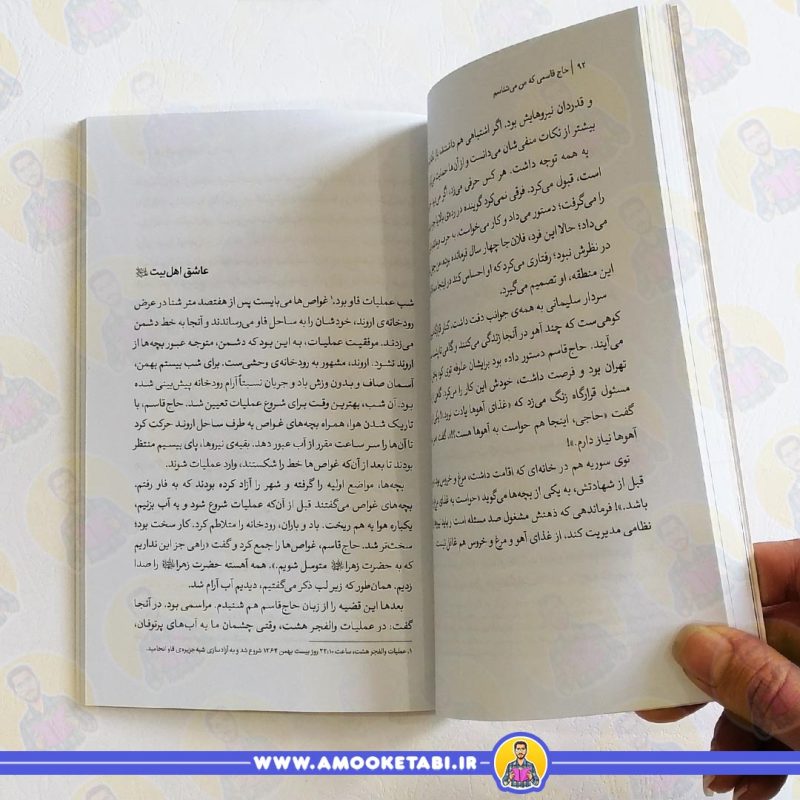 ۹۲ | حاج قاسمی که من می‌شناسم
و قدردان نیروهایش بود. اگر اشتباهی هم داشتند،
بیشتر از نکات منفی‌شان می‌دانست و از آن‌ها
به همه توجه داشت. هر کس حرفی می‌زد، اگر
است، قبول می‌کرد. فرقی نمی‌کرد گوینده در رده‌ی
را می‌گرفت؛ دستور می‌داد و کار می‌خواست. به حرف
می‌داد؛ حالا این فرد، فلان‌جا چهار سال فرمانده بوده،
در نظرش نبود؛ رفتاری می‌کرد که او احساس کند در اینجا
این منطقه، او تصمیم می‌گیرد.
سردار سلیمانی به همه‌ی جوانب دقت داشت. کنار
کوهی‌ست که چند آهو در آنجا زندگی می‌کنند و گاهی
می‌آیند. حاج‌قاسم دستور داده بود برایشان علوفه توی کوه
تهران بود و فرصت داشت، خودش این کار را می‌کرد. گاهی
مسئول قرارگاه زنگ می‌زد که «غذای آهوها یادت نرود!»
گفت «حاجی، اینجا هم حواست به آهوها هست؟!»، گفت
آهوها نیاز دارم.»!
توی سوریه هم در خانه‌ای که اقامت داشت، مرغ و خروس بود.
قبل از شهادتش، به یکی از بچه‌ها می‌گوید «حواست به غذای
باشد.»! فرماندهی که ذهنش مشغول صد مسئله است و باید
نظامی مدیریت کند، از غذای آهو و مرغ و خروس هم غافل نیست
عاشق اهل‌بیت ﷺ
شب عملیات فاو بود.۱ غواص‌ها می‌بایست پس از هفتصد متر شنا در عرض
رودخانه‌ی اروند، خودشان را به ساحل فاو می‌رساندند و آنجا به خط دشمن
می‌زدند. موفقیت عملیات، به این بود که دشمن، متوجه عبور بچه‌ها از
اروند نشود. اروند، مشهور به رودخانه‌ی وحشی‌ست. برای شب بیستم بهمن،
آسمان صاف و بدون وزش باد و جریان نسبتاً آرام رودخانه پیش‌بینی شده
بود. آن شب، بهترین وقت برای شروع عملیات تعیین شد. حاج قاسم، با
تاریک شدن هوا، همراه بچه‌های غواص به طرف ساحل اروند حرکت کرد
تا آن‌ها را سر ساعت مقرر از آب عبور دهد. بقیه‌ی نیروها، پای بیسیم منتظر
بودند تا بعد از آن‌که غواص‌ها خط را شکستند، وارد عملیات شوند.
بچه‌ها، مواضع اولیه را گرفته و شهر را آزاد کرده بودند که به فاو رفتم.
بچه‌های غواص می‌گفتند قبل از آن‌که عملیات شروع شود و به آب بزنیم،
یکباره هوا به هم ریخت. باد و باران، رودخانه را متلاطم کرد. کار سخت بود؛
سخت‌تر شد. حاج قاسم، غواص‌ها را جمع کرد و گفت «راهی جز این نداریم
که به حضرت زهرا متوسل شویم.». همه آهسته حضرت زهرا را صدا
زدیم. همان‌طور که زیر لب ذکر می‌گفتیم، دیدیم آب آرام شد.
بعدها این قضیه را از زبان حاج‌قاسم هم شنیدم. مراسمی بود. در آنجا
گفت: در عملیات والفجر هشت، وقتی چشمان ما به آب‌های پرتوفان،
۱. عملیات والفجر هشت، ساعت ۲۲:۱۰ روز بیست بهمن ۱۳۶۴ شروع شد و به آزادسازی شبه جزیره‌ی فاو انجامید.
WWW.AMOOKETABI.IR